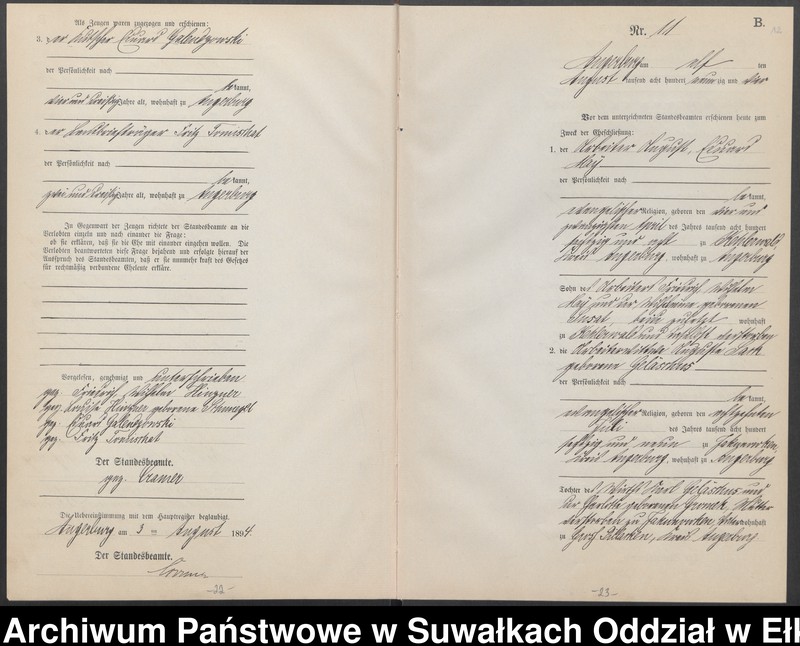 Als Zeugen waren zugezogen und erschienen:
3. der Kutscher Eduard
der Persönlichkeit nach
be kannt,
vier und dreißig Jahre alt, wohnhaft zu Angerburg
4. der Landbriefträger Fritz
der Persönlichkeit nach
be kannt,
zwei und dreißig Jahre alt, wohnhaft zu Angerburg
In Gegenwart der Zeugen richtete der Standesbeamte an die
Verlobten einzeln und nach einander die Frage:
ob sie erklären, daß sie die Ehe mit einander eingehen wollen. Die
Verlobten beantworteten diese Frage bejahend und erfolgte hierauf der
Ausspruch des Standesbeamten, daß er sie nunmehr kraft des Gesetzes
für rechtmäßig verbundene Eheleute erkläre.
Vorgelesen, genehmigt und unterschrieben
gez. Friedrich Wilhelm
gez. geborene
gez. Eduard
gez. Fritz
Der Standesbeamte.
gez. Cramer
Die Uebereinstimmung mit dem Hauptregister beglaubigt.
Angerburg am 3 ten August 1894.
Der Standesbeamte.
Cramer
-22-
B.
Nr. 11
Angerburg am elf ten
August tausend acht hundert neun zig und vier
Vor dem unterzeichneten Standesbeamten erschienen heute zum
Zweck der Eheschließung:
1. der Arbeiter August Eduard
May
der Persönlichkeit nach
be kannt,
evangelischer Religion, geboren den vier und
zwanzigsten April des Jahres tausend acht hundert
sechzig und acht zu
Kreis Angerburg, wohnhaft zu Angerburg
Sohn des Arbeiters Friedrich Wilhelm
May und der Wilhelmine geborenen
zuletzt wohnhaft
zu und daselbst verstorben
2. die Arbeiterwittwe Auguste
geborene
der Persönlichkeit nach
be kannt,
evangelischer Religion, geboren den achtzehnten
Juli des Jahres tausend acht hundert
sechzig und neun zu
Kreis Angerburg, wohnhaft zu Angerburg
Tochter des Wirths Karl und
der Charlotte geborenen Mutter
verstorben zu Vater wohnhaft
zu Groß Kreis Angerburg
-23-
Archiwum Państwowe w Suwałkach Oddział w Ełk